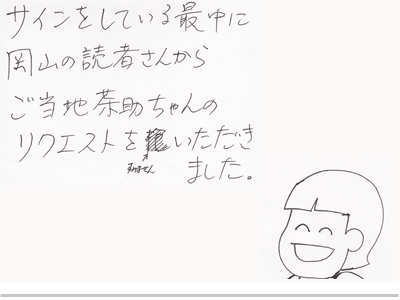 サインをしている最中に
岡山の読者さんから
ご当地茶助ちゃんの
リクエストをいただき
すみません
ました。